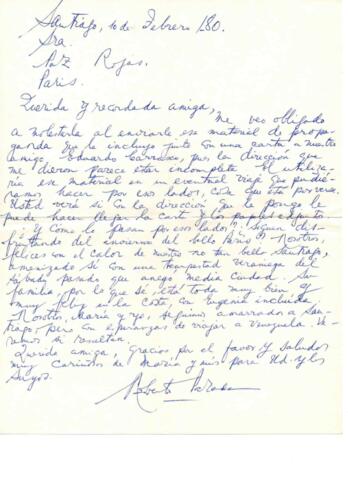 Santiago, 10 de Febrero /80.
Sra.
Paz Rojas.
París.
Querida y recordada amiga,
Me veo obligado
a molestarla al enviarle ese material de propa-
ganda que le incluyo junto con una carta a nuestro
amigo Eduardo Carrasco, pues la dirección que
me dieron parece estar incompleta. El utiliza-
ría ese material en un eventual viaje que pudié-
ramos hacer por esos lados, cosa que está por verse.
Usted verá si con la dirección que le pongo le
puede hacer llegar la carta y los papeles
¿Y Cómo lo pasan por esos lados? ¿Siguen dis-
frutando del invierno del bello París? Nosotros,
felices con el calor de nuestro no tan bello Santiago,
amenizado si con una tempestad veraniega del
Sábado pasado que anegó media ciudad. Su
familia, por lo que sé, está toda muy bien y
muy feliz en la Costa, con Eugenia incluída.
Nosotros, María y yo, seguimos amarrados a San-
tiago, pero con esperanzas de viajar a Venezuela. Ve-
remos si resulta.
Querida amiga, gracias por el favor y saludos
muy cariñosos de María y míos para Ud. y los
suyos.
Roberto Parada